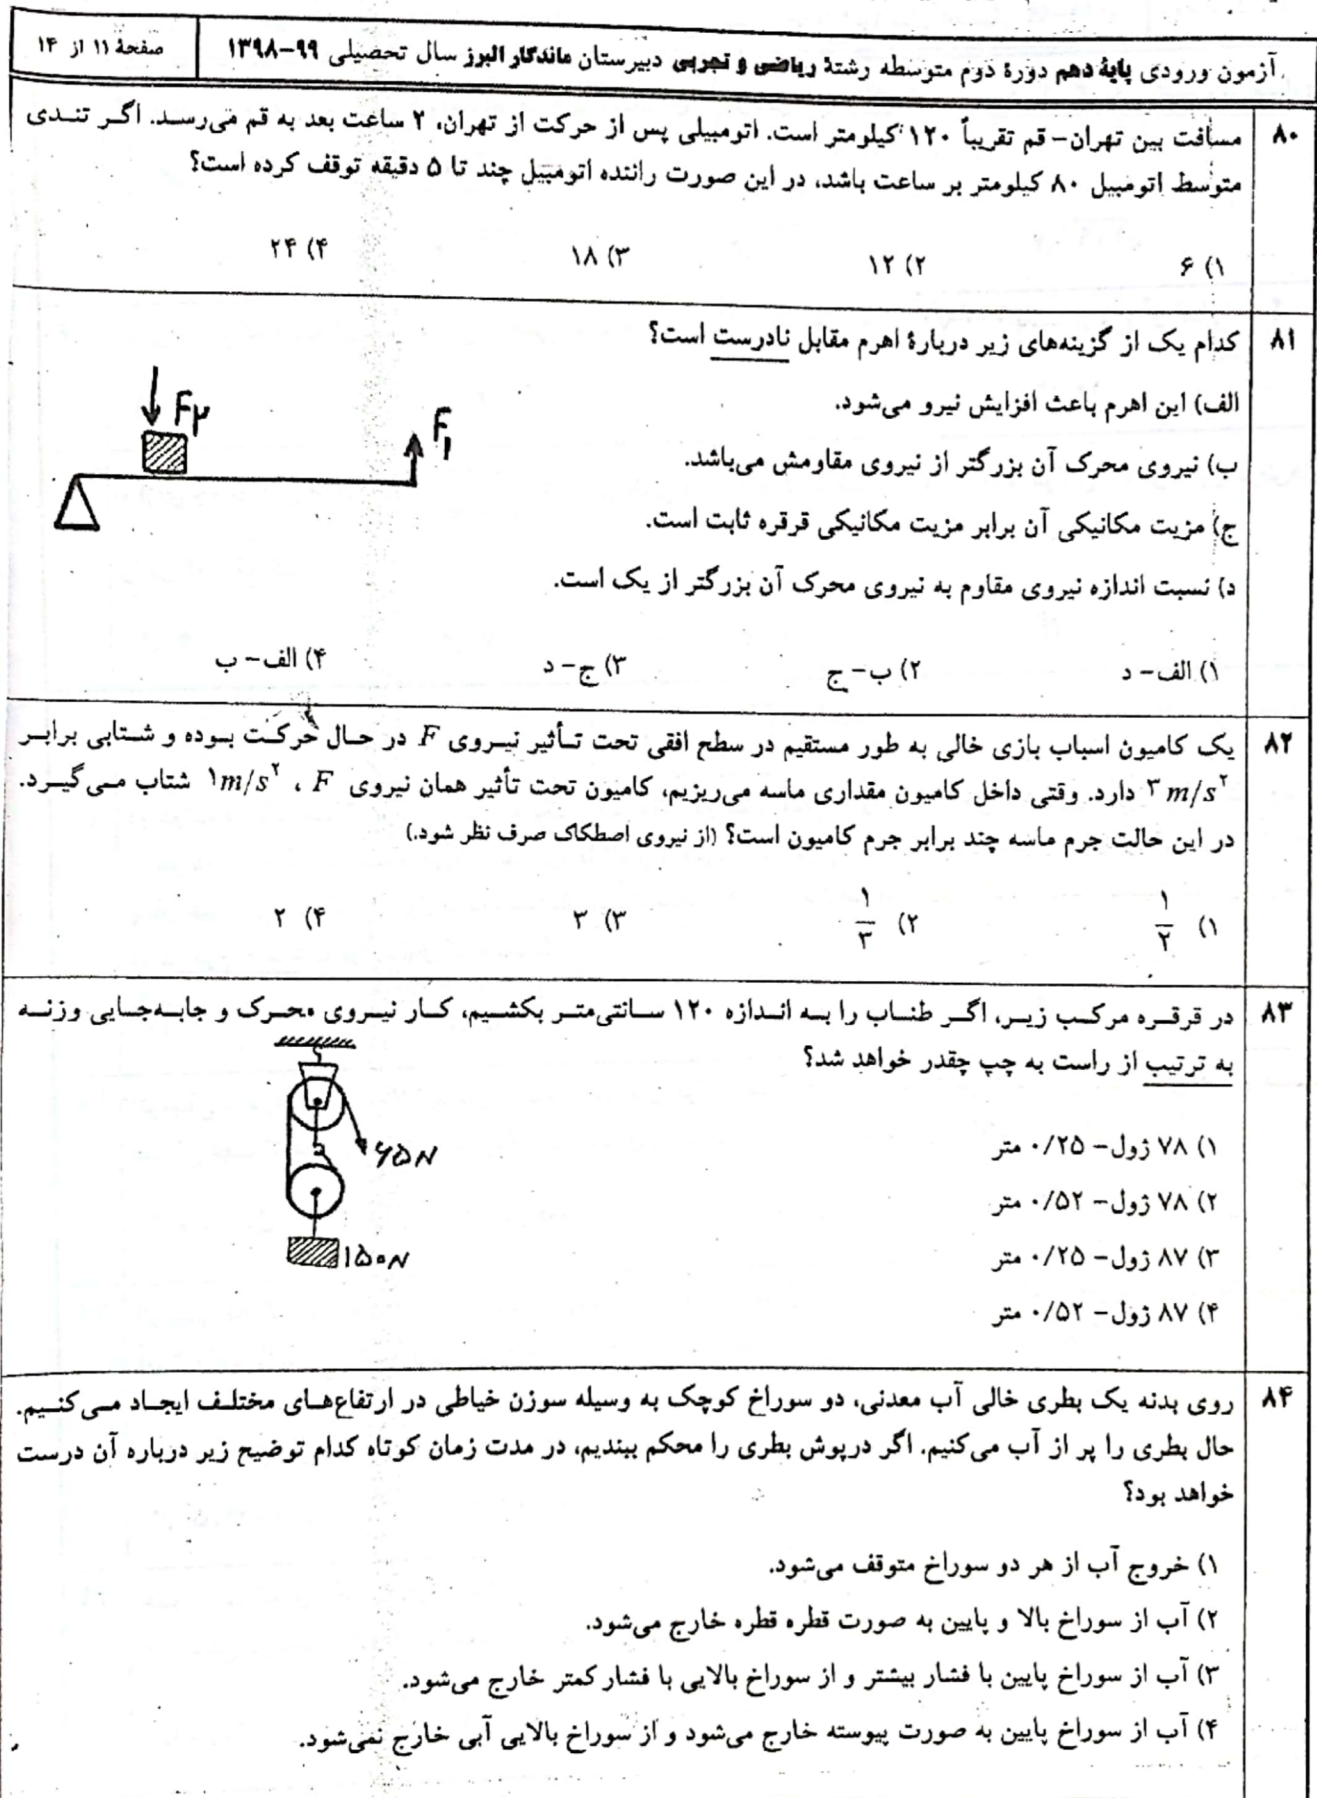 آزمون ورودی پایهٔ دهم دورهٔ دوم متوسطه رشتهٔ ریاضی و تجربی دبیرستان ماندگار البرز سال تحصیلی ۹۹-۱۳۹۸
صفحهٔ ۱۱ از ۱۴
۸۰
مسافت بین تهران- قم تقریباً ۱۲۰ کیلومتر است. اتومبیلی پس از حرکت از تهران، ۲ ساعت بعد به قم می‌رسد. اگر تندی
متوسط اتومبیل ۸۰ کیلومتر بر ساعت باشد، در این صورت راننده اتومبیل چند تا ۵ دقیقه توقف کرده است؟
۱) ۶ ۲) ۱۲ ۳) ۱۸ ۴) ۲۴
۸۱
کدام یک از گزینه‌های زیر دربارهٔ اهرم مقابل نادرست است؟
الف) این اهرم باعث افزایش نیرو می‌شود.
ب) نیروی محرک آن بزرگتر از نیروی مقاومش می‌باشد.
ج) مزیت مکانیکی آن برابر مزیت مکانیکی قرقره ثابت است.
د) نسبت اندازه نیروی مقاوم به نیروی محرک آن بزرگتر از یک است.
F۲
F۱
۱) الف- د ۲) ب- ج ۳) ج- د ۴) الف- ب
۸۲
یک کامیون اسباب بازی خالی به طور مستقیم در سطح افقی تحت تأثیر نیروی F در حال حرکت بوده و شتابی برابر
۳ m/s۲ دارد. وقتی داخل کامیون مقداری ماسه می‌ریزیم، کامیون تحت تأثیر همان نیروی F ، ۱m/s۲ شتاب می‌گیرد.
در این حالت جرم ماسه چند برابر جرم کامیون است؟ (از نیروی اصطکاک صرف نظر شود.)
۱) ۱/۲ ۲) ۱/۳ ۳) ۳ ۴) ۲
۸۳
در قرقره مرکب زیر، اگر طناب را به اندازه ۱۲۰ سانتی‌متر بکشیم، کار نیروی محرک و جابه‌جایی وزنه
به ترتیب از راست به چپ چقدر خواهد شد؟
۶۵N
۱۵۰N
۱) ۷۸ ژول- ۰/۲۵ متر
۲) ۷۸ ژول- ۰/۵۲ متر
۳) ۸۷ ژول- ۰/۲۵ متر
۴) ۸۷ ژول- ۰/۵۲ متر
۸۴
روی بدنه یک بطری خالی آب معدنی، دو سوراخ کوچک به وسیله سوزن خیاطی در ارتفاع‌های مختلف ایجاد می‌کنیم.
حال بطری را پر از آب می‌کنیم. اگر درپوش بطری را محکم ببندیم، در مدت زمان کوتاه کدام توضیح زیر درباره آن درست
خواهد بود؟
۱) خروج آب از هر دو سوراخ متوقف می‌شود.
۲) آب از سوراخ بالا و پایین به صورت قطره قطره خارج می‌شود.
۳) آب از سوراخ پایین با فشار بیشتر و از سوراخ بالایی با فشار کمتر خارج می‌شود.
۴) آب از سوراخ پایین به صورت پیوسته خارج می‌شود و از سوراخ بالایی آبی خارج نمی‌شود.